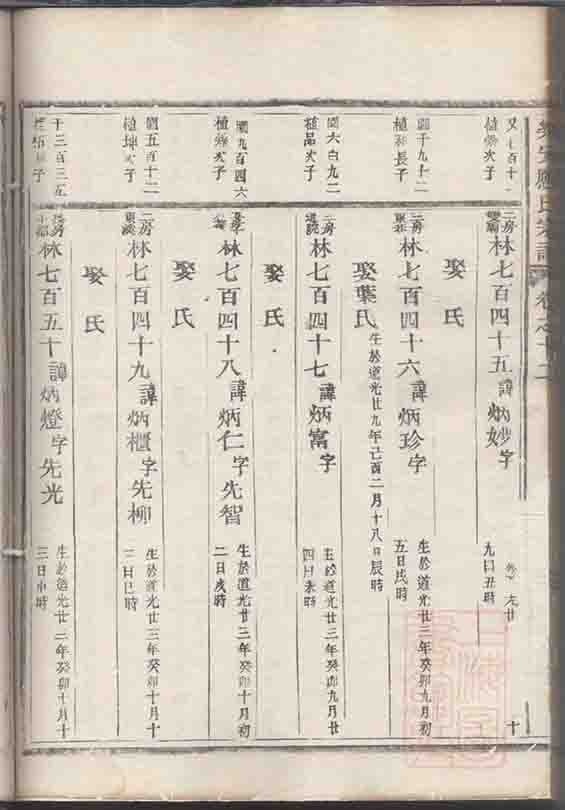 氏宗譜 卷之十二
十
二房
林七百四十五諱炳妙字
九日丑時
娶氏
植 長子
二房
林七百四十六諱炳珍字
生於道光廿三年癸卯九月初
五日戌時
娶葉氏 生於道光廿九年己酉二月十八日辰時
園六百九二
植品次子
二房
林七百四十七諱炳富字
生於道光廿三年癸卯九月廿
四日未時
娶氏
園九百四六
次子
林七百四十八諱炳仁字先智
生於道光廿三年癸卯十月初
二日戌時
娶氏
園五百十二
植坤次子
二房
林七百四十九諱炳櫃字先柳
生於道光廿三年癸卯十月十
三日巳時
娶氏
十三百三五
子
房
林七百五十諱炳燈字先光
生於道光廿三年癸卯十月十
三日 時